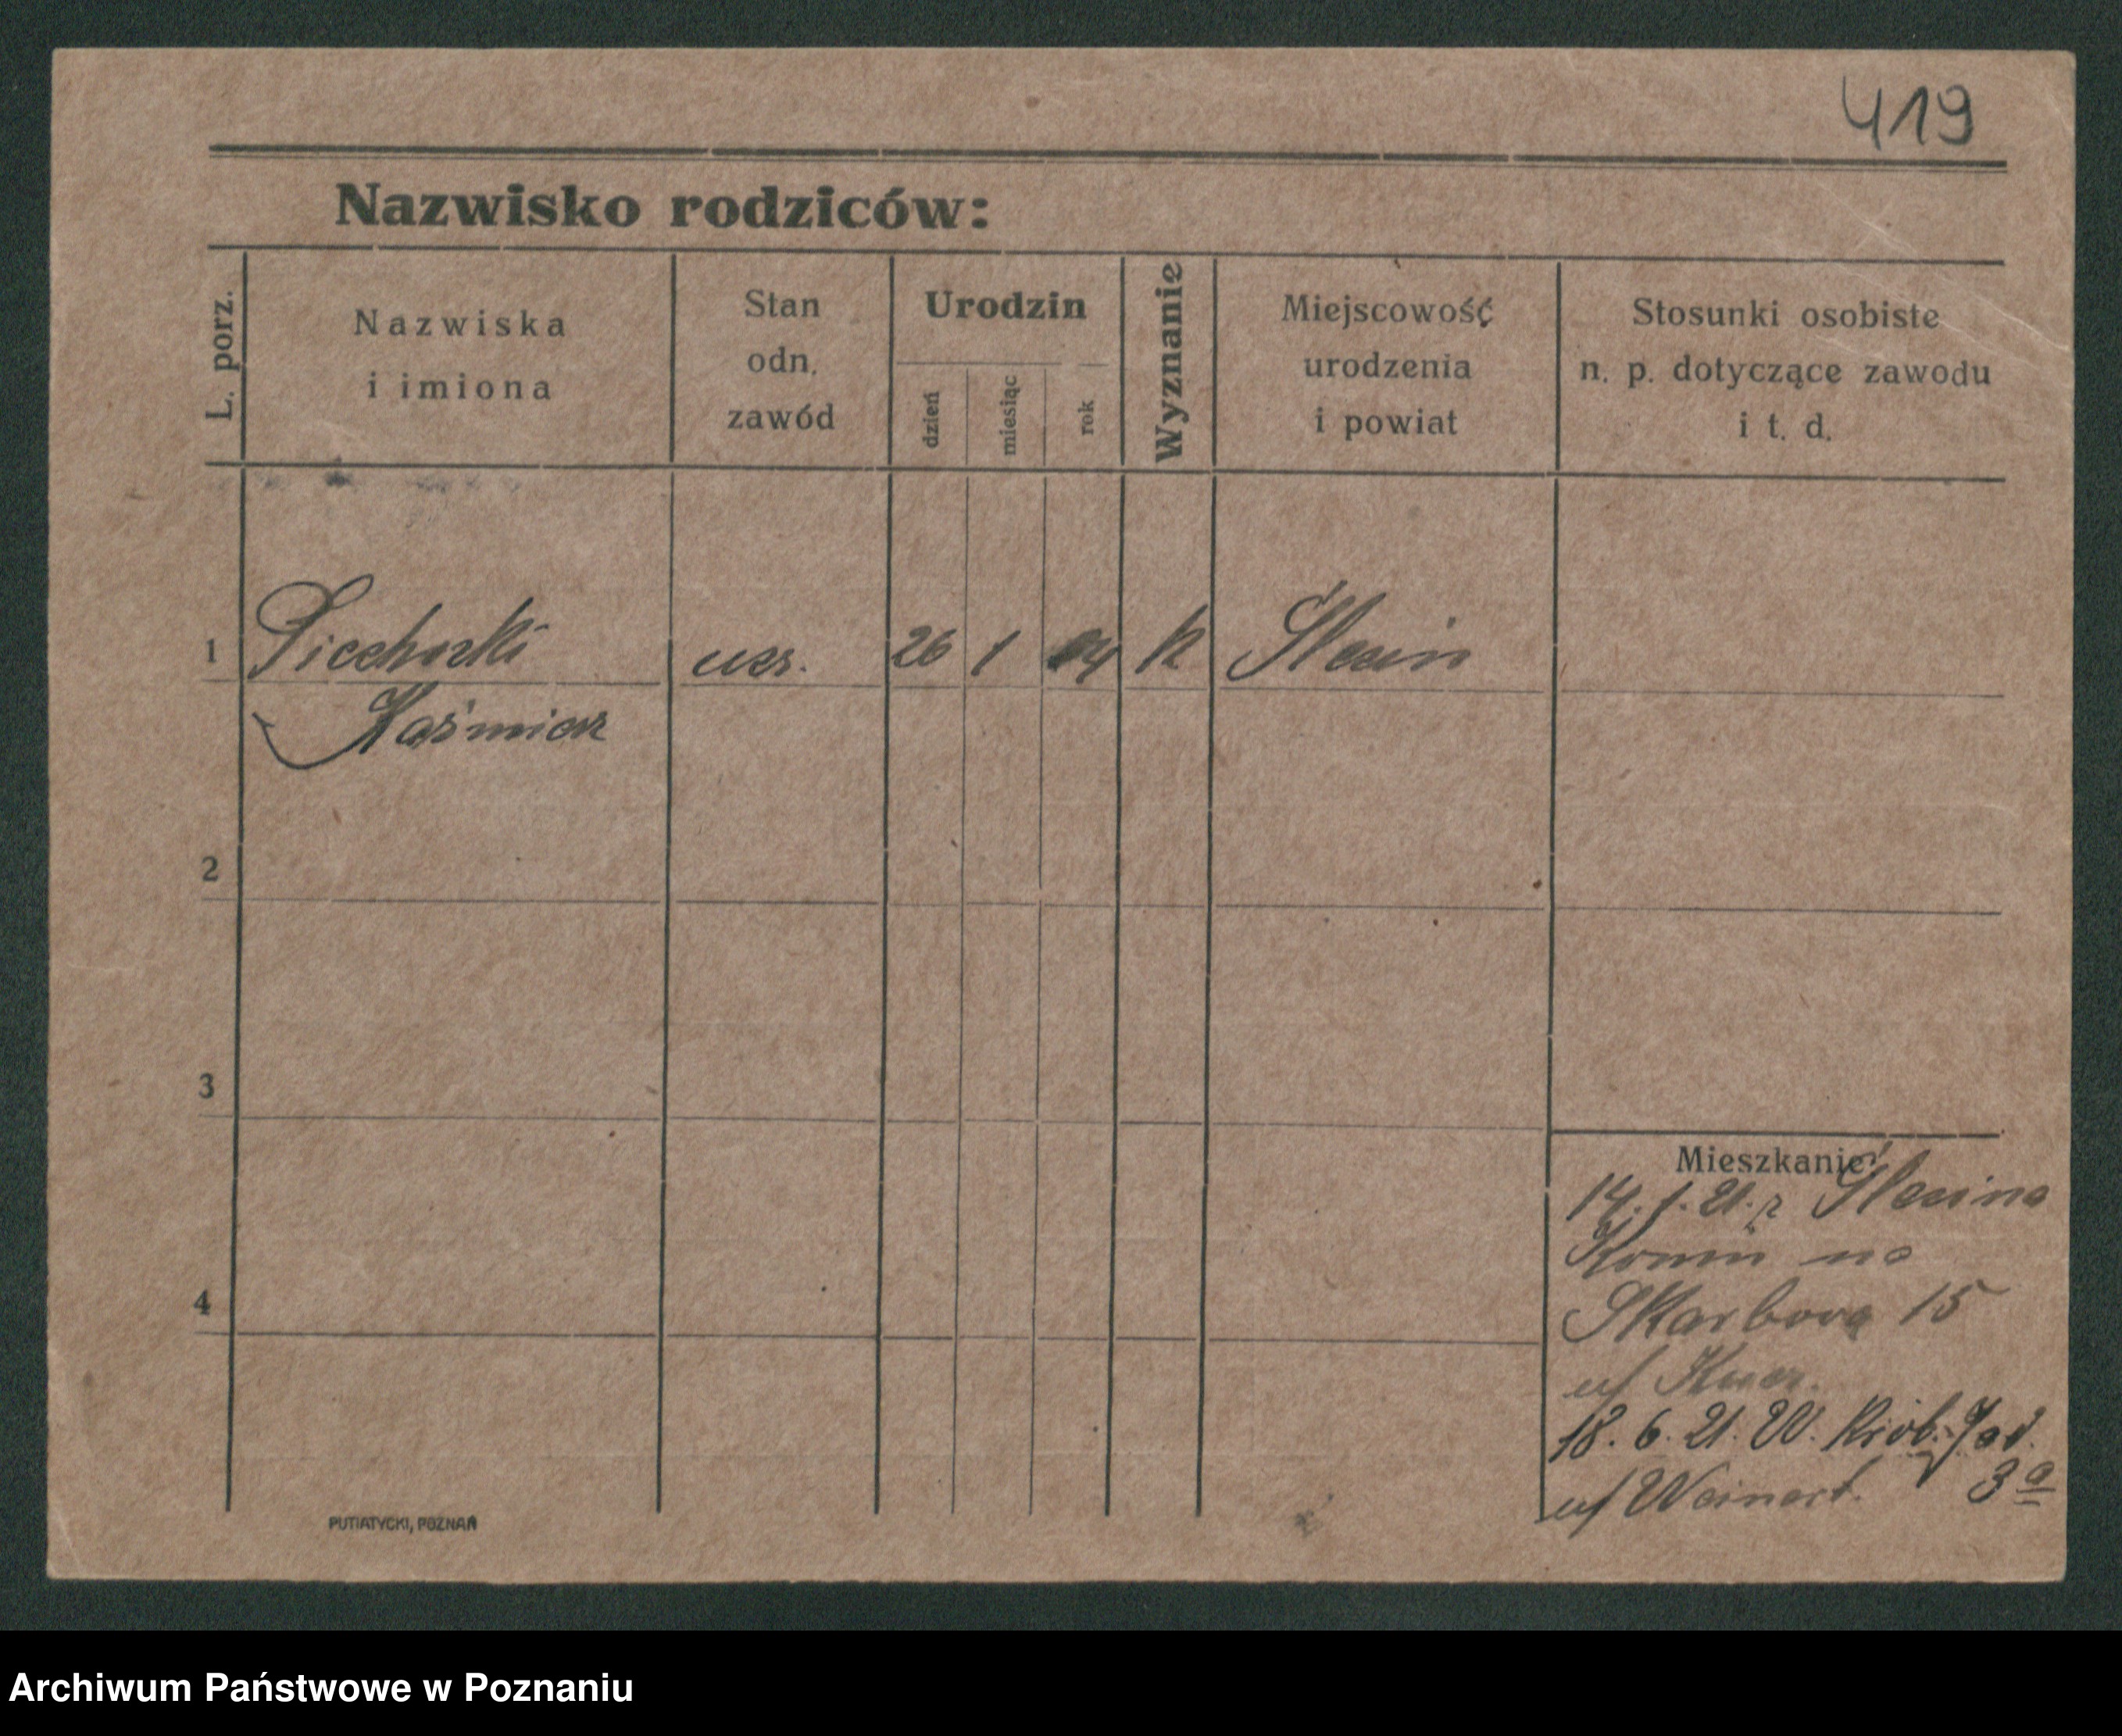 419
Nazwisko rodziców:
L. porz.
Nazwiska
i imiona
Stan
odn.
zawód
Urodzin
dzień
miesiąc
rok
Wyznanie
Miejscowość
urodzenia
i powiat
Stosunki osobiste
n. p. dotyczące zawodu
i t. d.
1 ucz. 26 1 04 k Ślesin
Kaźmierz
2
3
4
Mieszkanie:
14. 1. 21. z Ślesina
Konin na
Skarbowa 15
u/
18. 6. 21. W.
u/ Weinert. 3 a
PUTIATYCKI, POZNAŃ
Archiwum Państwowe w Poznaniu